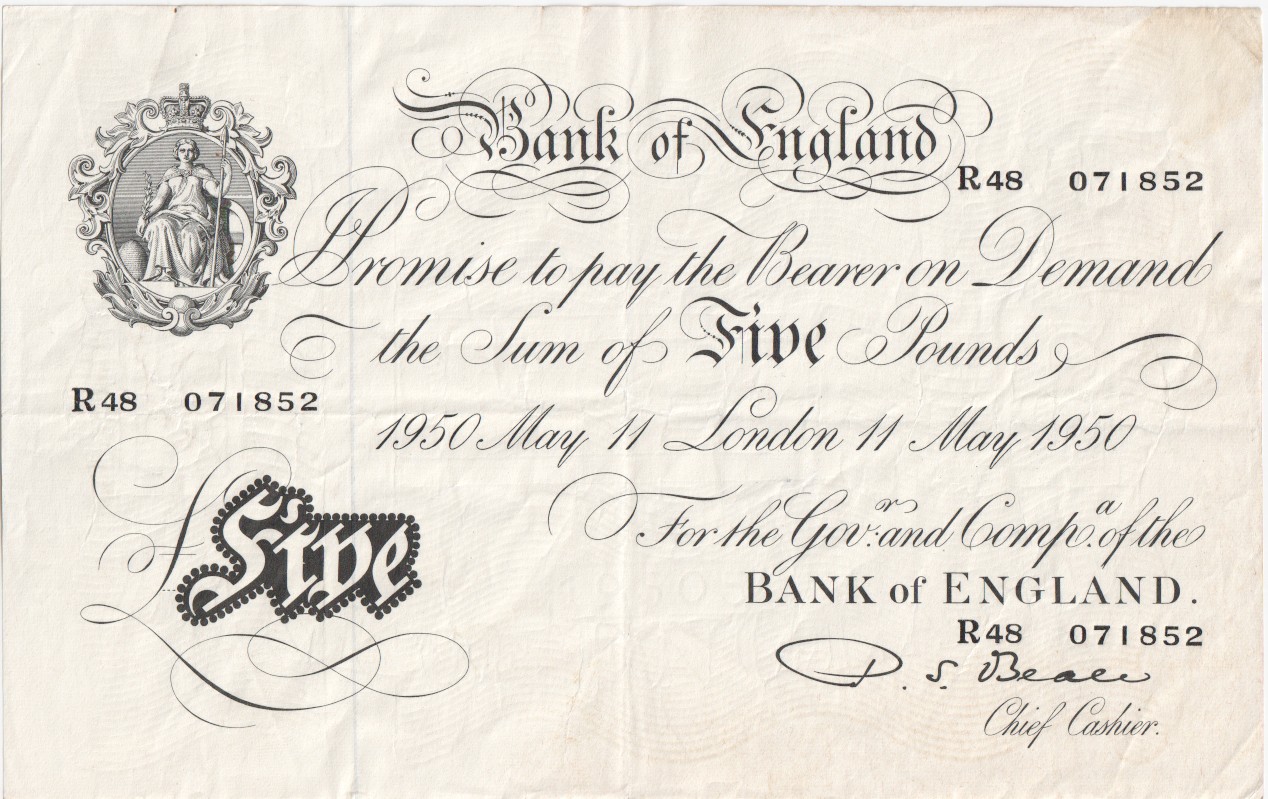 Bank of England
R48 071852
I Promise to pay the Bearer on Demand
the Sum of Five Pounds
R48 071852
1950 May 11 London 11 May 1950
£Five
For the Govr. and Compa. of the
BANK of ENGLAND.
R48 071852
P. S. Beale
Chief Cashier.